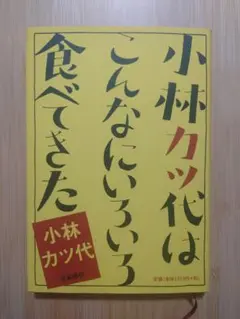 小林カツ代は
こんなにいろいろ
食べてきた
小林
カツ代